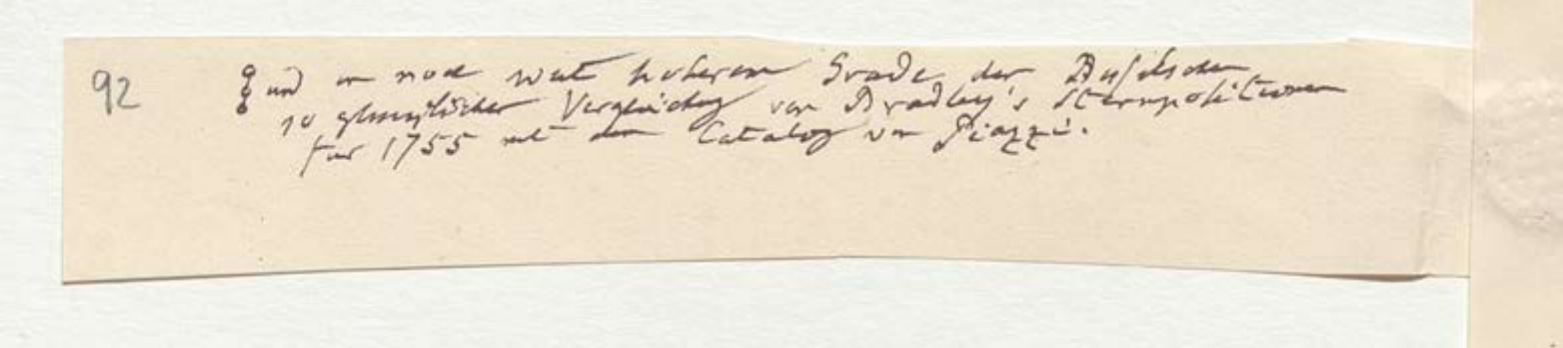 92 und in noch weit höherem Grade der Besselschen
so glücklichen Vergleichung von Bradley's Sternpositionen
für 1755 mit dem Catalog von Piazzi.